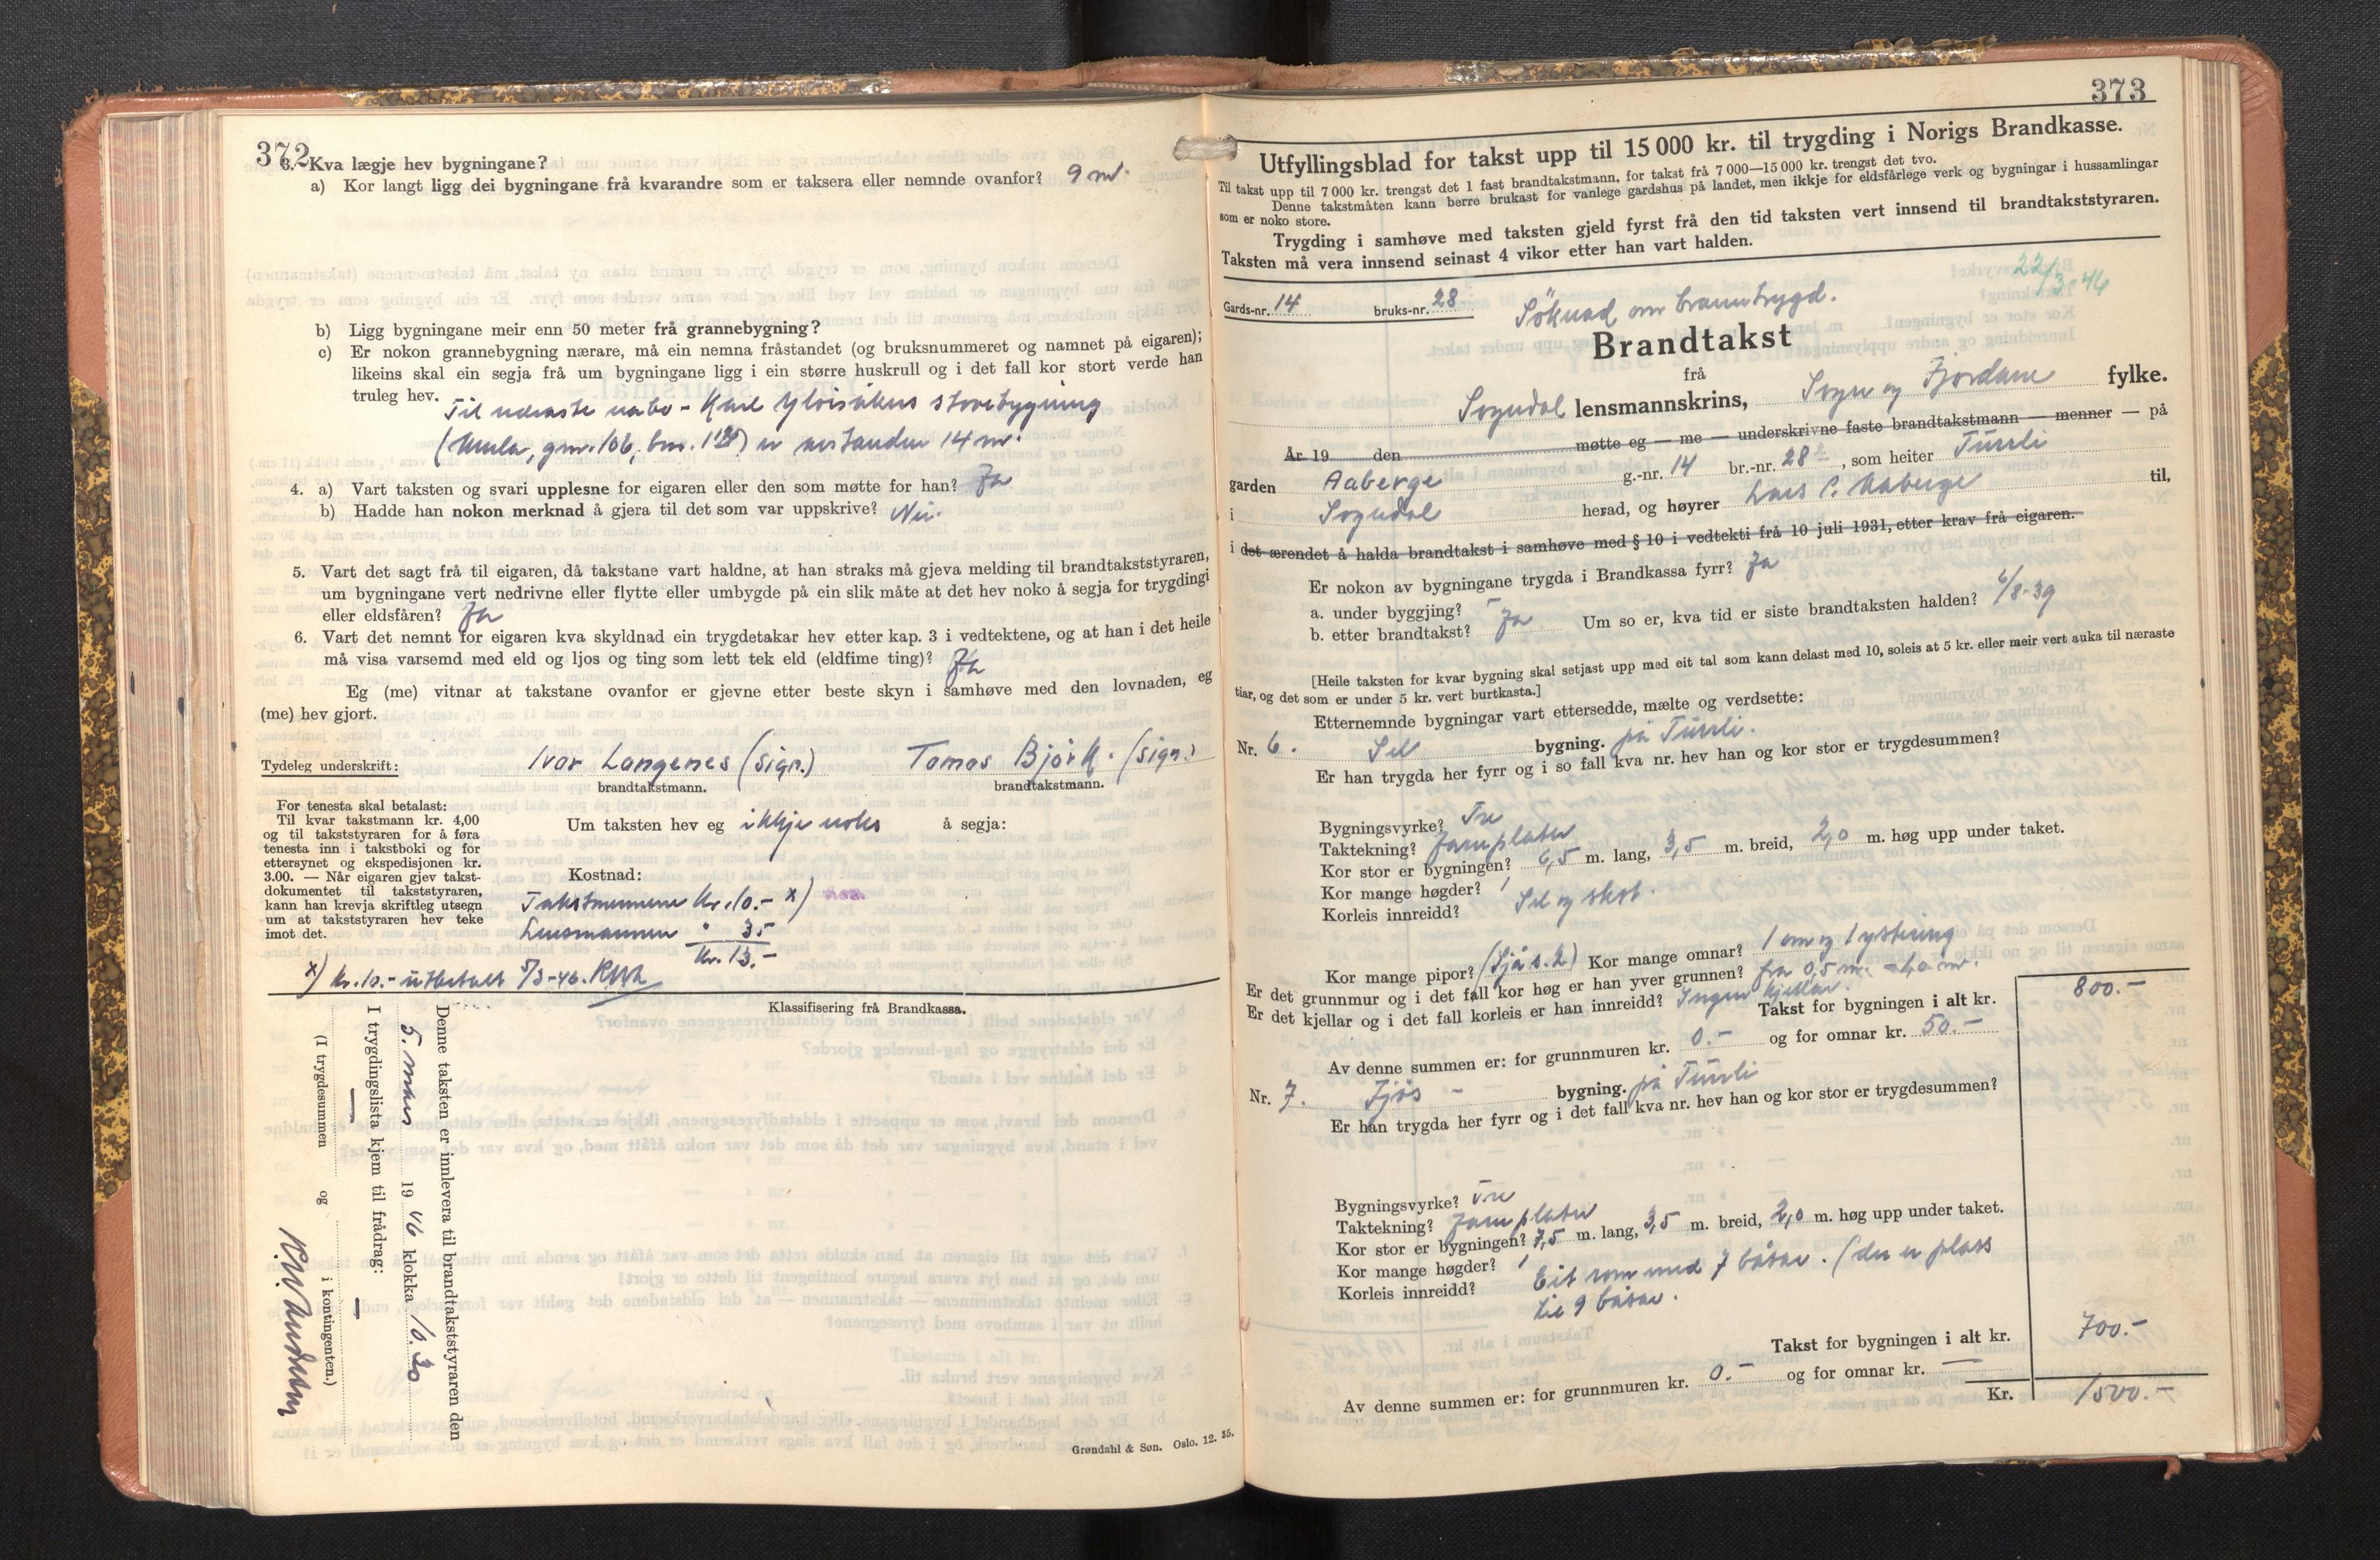 372
3. Kva lægje hev bygningane?
a) Kor langt ligg dei bygningane frå kvarandre som er taksera eller nemnde ovanfor? 9 m.
b) Ligg bygningane meir enn 50 meter frå grannebygning?
c) Er nokon grannebygning nærare, må ein nemna fråstandet (og bruksnummeret og namnet på eigaren);
likeins skal ein segja frå um bygningane ligg i ein større huskrull og i det fall kor stort verde han
truleg hev.
Til næraste nabo - Karl Ylvisåkers stovebygning
gnr. 106, bnr. er avstanden 14 m.
4. a) Vart taksten og svari upplesne for eigaren eller den som møtte for han? Ja
b) Hadde han nokon merknad å gjera til det som var uppskrive? Nei.
5. Vart det sagt frå til eigaren, då takstane vart haldne, at han straks må gjeva melding til brandtakststyraren,
um bygningane vert nedrivne eller flytte eller umbygde på ein slik måte at det hev noko å segja for trygdingi
eller eldsfåren? Ja
6. Vart det nemnt for eigaren kva skyldnad ein trygdetakar hev etter kap. 3 i vedtektene, og at han i det heile
må visa varsemd med eld og ljos og ting som lett tek eld (eldfime ting)? Ja
Eg (me) vitnar at takstane ovanfor er gjevne etter beste skyn i samhøve med den lovnaden, eg
(me) hev gjort.
Tydeleg underskrift: Ivar Langenes (sign.) Tomas Björk. (sign.)
brandtakstmann. brandtakstmann.
For tenesta skal betalast:
Til kvar takstmann kr. 4,00
og til takststyraren for å føra
tenesta inn i takstboki og for
ettersynet og ekspedisjonen kr.
3.00. — Når eigaren gjev takst-
dokumentet til takststyraren,
kann han krevja skriftleg utsegn
um at takststyraren hev teke
imot det.
Um taksten hev eg ikkje noko å segja:
Kostnad:
Takstmennene kr. 10.- x)
Lensmannen " 3.-
Kr. 13.-
x) kr. 10.- utbetalt 5/3-46.
Klassifisering frå Brandkassa.
Denne taksten er innlevera til brandtakststyraren den
5. mars 1946 klokka 10.30
I trygdingslista kjem til frådrag:
(I trygdesummen — og — i kontingenten.)
Grøndahl & Søn. Oslo. 12. 35.
373
Utfyllingsblad for takst upp til 15 000 kr. til trygding i Norigs Brandkasse.
Til takst upp til 7 000 kr. trengst det 1 fast brandtakstmann, for takst frå 7 000—15 000 kr. trengst det tvo.
Denne takstmåten kann berre brukast for vanlege gardshus på landet, men ikkje for eldsfårlege verk og bygningar i hussamlingar
som er noko store.
Trygding i samhøve med taksten gjeld fyrst frå den tid taksten vert innsend til brandtakststyraren.
Taksten må vera innsend seinast 4 vikor etter han vart halden.
22/3-46
Gards-nr. 14 bruks-nr. 28
Söknad om branntrygd.
Brandtakst
frå
Sogndal lensmannskrins, Sogn og Fjordane fylke.
År 19 den møtte eg — me — underskrivne faste brandtakstmann — menner — på
garden Aaberge g.-nr. 14 br.-nr. 28, som heiter Turrli
i Sogndal herad, og høyrer Lars P. Aaberge til,
i det ærendet å halda brandtakst i samhøve med § 10 i vedtekti frå 10 juli 1931, etter krav frå eigaren.
Er nokon av bygningane trygda i Brandkassa fyrr? Ja
a. under byggjing? -
b. etter brandtakst? Ja Um so er, kva tid er siste brandtaksten halden? 6/8-39
[Heile taksten for kvar bygning skal setjast upp med eit tal som kann delast med 10, soleis at 5 kr. eller meir vert auka til næraste
tiar, og det som er under 5 kr. vert burtkasta.]
Etternemnde bygningar vart ettersedde, mælte og verdsette:
Nr. 6. Sel bygning. på Turrli.
Er han trygda her fyrr og i so fall kva nr. hev han og kor stor er trygdesummen?
Bygningsvyrke? Tre
Taktekning? Jarnplater
Kor stor er bygningen? 6,5 m. lang, 3,5 m. breid, 2,0 m. høg upp under taket.
Kor mange høgder? 1
Korleis innreidd? Sel og skot.
Kor mange pipor? (Sjå s. 2) Kor mange omnar? 1 omn og 1 ystering
Er det grunnmur og i det fall kor høg er han yver grunnen? fra 0,5 m.
Er det kjellar og i det fall korleis er han innreidd? Ingen kjellar.
Takst for bygningen i alt kr. 800.-
Av denne summen er: for grunnmuren kr. 0.- og for omnar kr. 50.-
Nr. 7. Fjös - bygning. på Turrli
Er han trygda her fyrr og i det fall kva nr. hev han og kor stor er trygdesummen?
Bygningsvyrke? Tre
Taktekning? Jarnplater
Kor stor er bygningen? 7,5 m. lang, 3,5 m. breid, 2,0 m. høg upp under taket.
Kor mange høgder? 1
Korleis innreidd? Eit rom med 7 båsar. (der er plass
til 9 båsar.
Takst for bygningen i alt kr. 700.-
Av denne summen er: for grunnmuren kr. 0.- og for omnar kr. —
Kr. 1500.-